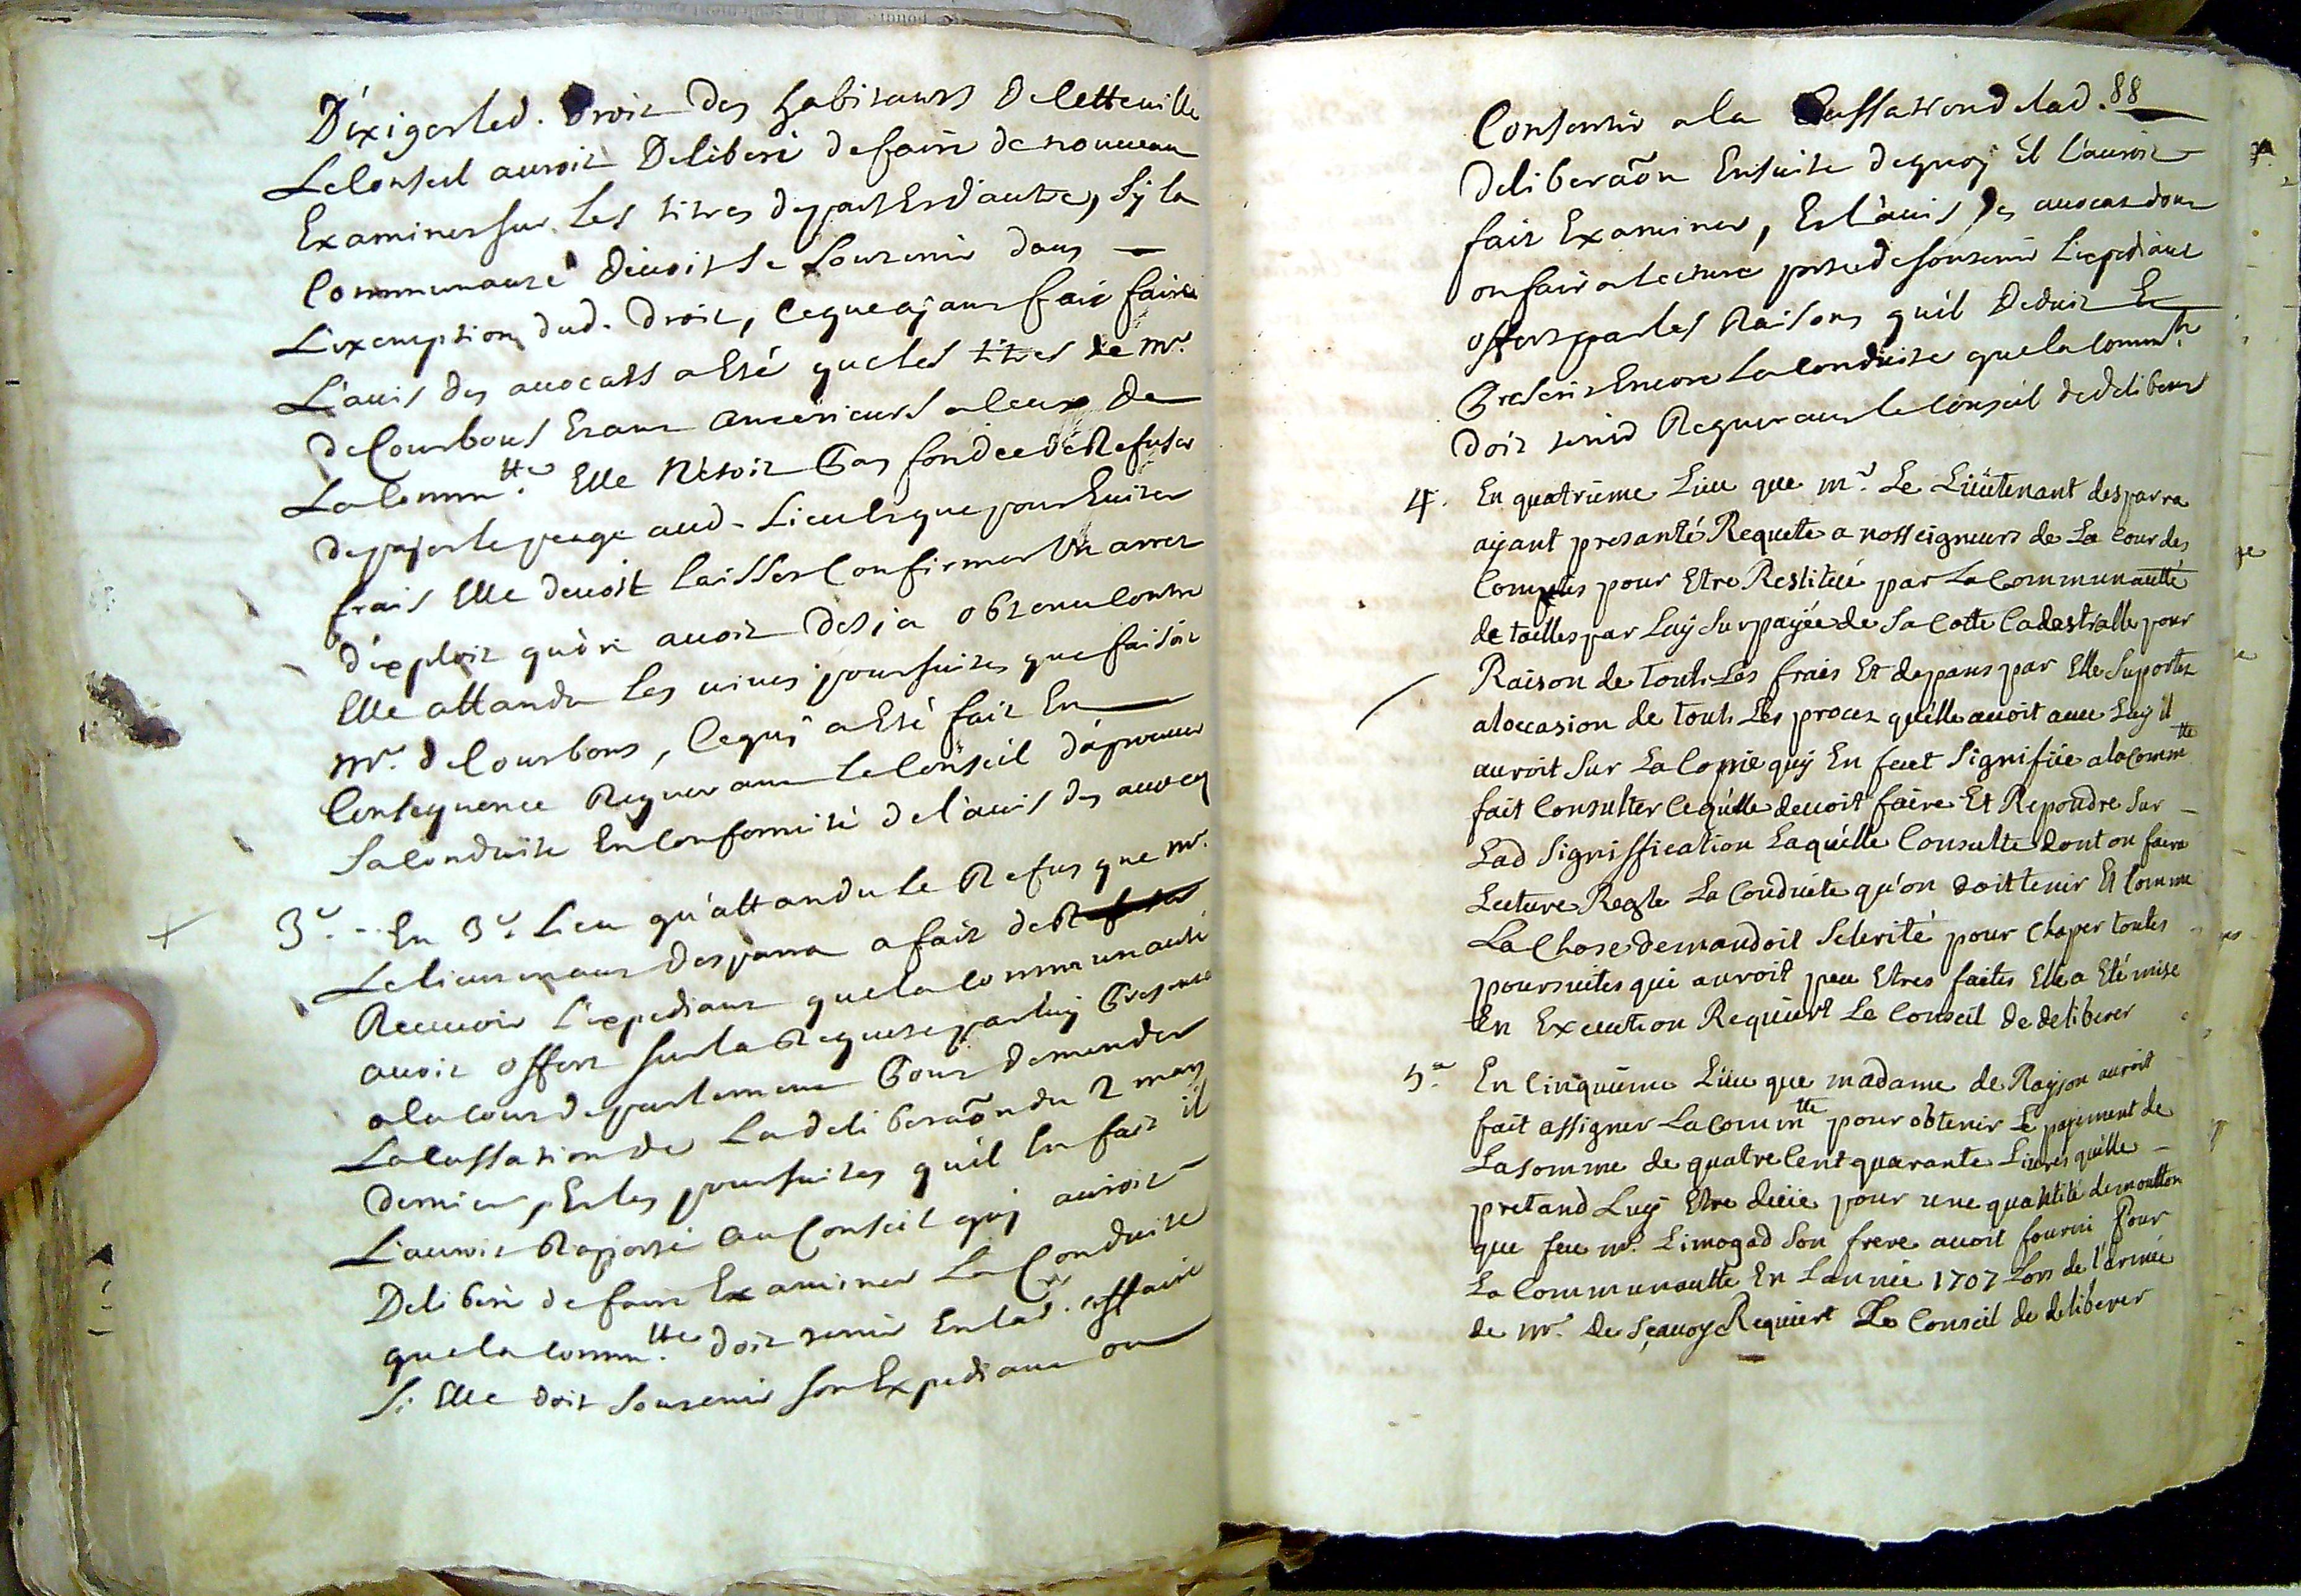 D'exiger led. droit des habitants de cette ville
Le Conseil auroit Deliberé de faire de nouveau
Examiner sur les titres de part Et d'autre, sy la
Communauté deuoit se soutenir dans
L'exemption dud. droit, ce que ajant fait faire
L'auis des auocats a Eté que les titres de mr.
de Courbons Etant anterieurs a ceux de
La Commtté. Elle N'etoit Pas fondée de Refuser
de pajer le peage aud. Lieu Et que pour Euiter
frais Elle deuoit laisser Confirmer Un arret
d'exploit qu'on auoit desja obtenu Contre
Elle attandu les viues poursuites que faisoit
mr. de Courbons, Ce qui a Eté fait En
Consequence Requerant le Conseil d'aprouuer
sa Conduite En Conformité de l'auis des auocas
3e. En 3e. Lieu qu'attandu le Refus que mr.
Le lieutenant desparra a fait de
Receuoir l'expediant que la Communauté
auoit offert sur la Requete par luy Presentée
a la Cour de parlement Pour demender
La Cassation de La deliberaõn du 2 mars
dernier, Et les poursuites qu'il En fait il
L'auroit Raporté au Conseil quj auroit
Deliberé de faire Examiner La Conduite
que la Commtté. doit tenir En lad. affaire
Si Elle doit soutenir son Expediant ou
88
Consentir a la Cassation de lad.
deliberaõn Ensuite de quoj il l'auroit
fait Examiner, Et l'auis des auocas dont
on fair a lecture porte de soutenir L'expediant
offert par les Raisons qu'il deduit Et
Prescrit Encore La Conduite que la Commté.
doit tenir Requerant le Conseil de deliberer
4. En quatrieme Lieu que mr. Le Lieutenant desparra
ayant presanté Requete a nosseigneurs de La Cour des
Comptes pour Etre Restitué par La Communautté
de tailles par Luy surpayée de sa Cotte Cadastralle pour
Raison de touts Les frais Et depans par Elle suportez
a loccasion de touts Les procez qu'elle auoit auec Luy il
auroit sur La Copie quy En feut signifiée a la Commtté
fait Consulter Ce qu'elle deuoit faire Et Repondre sur
Lad signiffication Laquelle Consulte dont on faira
Lecture Regle La Conduite qu'on doit tenir Et Comme
La Chose demandoit selerité pour Chaper toutes
poursuites qui auroit peu Etres faites Elle a Eté mise
En Execution Requiert Le Conseil de deliberer
5e. En Cinquieme Lieu que madame de Rayson auroit
fait assigner La Commtté pour obtenir Le pajement de
La somme de quatre Cent quarante Liures qu'elle
pretand Luy Etre deüe pour une quantité de moutton
que feu mr. Limogad son frere auoit fourni Pour
La Communautté En Lannée 1707 Lors de l'armée
de mr. de Sçauoye Requiert Le Conseil de deliberer